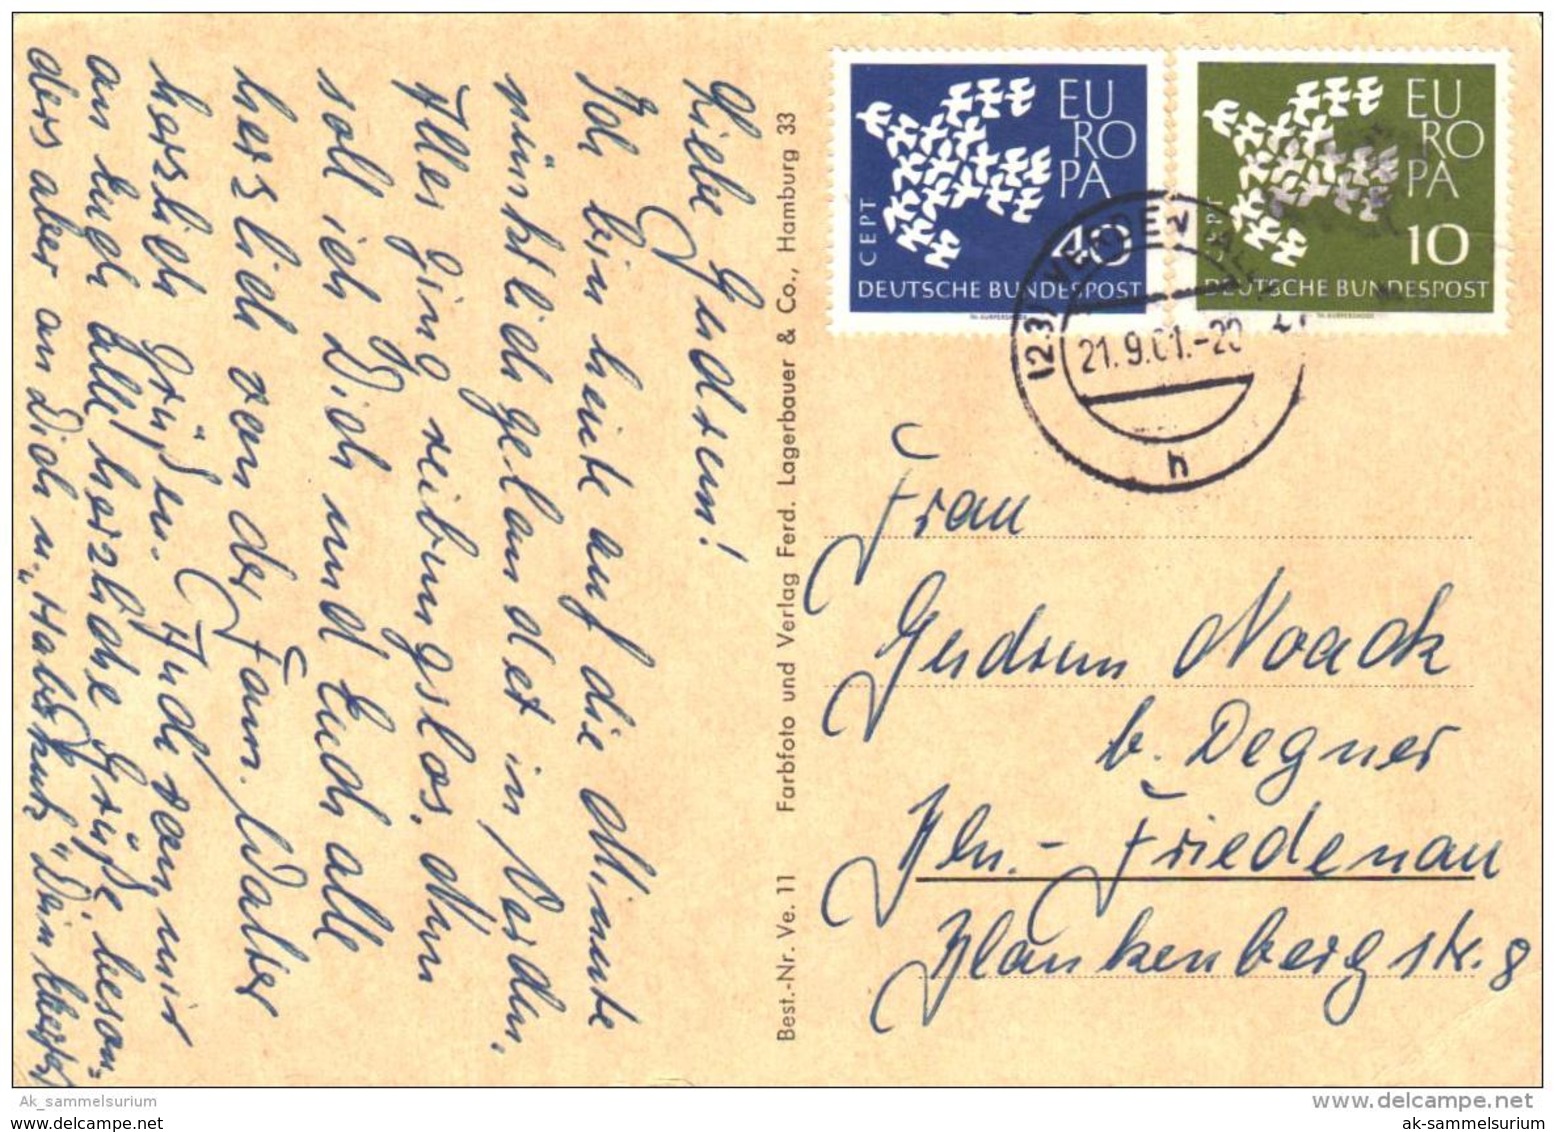 Liebe Gudrun!
Ich bin heute auf die Minute
pünktlich gelandet in Verden.
Alles ging reibungslos. Nun
soll ich Dich und Euch alle
herzlich von der Fam. Walter
herzlich grüßen. Auch von mir
an Euch alle herzliche Grüße, beson-
ders aber an Dich u. Dein
Best.-Nr. Ve. 11 Farbfoto und Verlag Ferd. Lagerbauer & Co., Hamburg 33
EU
RO
PA
CEPT
40
DEUTSCHE BUNDESPOST
EU
RO
PA
CEPT
10
DEUTSCHE BUNDESPOST
VERDEN
21.9.61.-20
h
Frau
Gudrun Noack
b. Degner
Bln.-Friedenau
Blankenbergstr. 8
Ak_sammelsurium
www.delcampe.net
www.delcampe.net
ak-sammelsurium